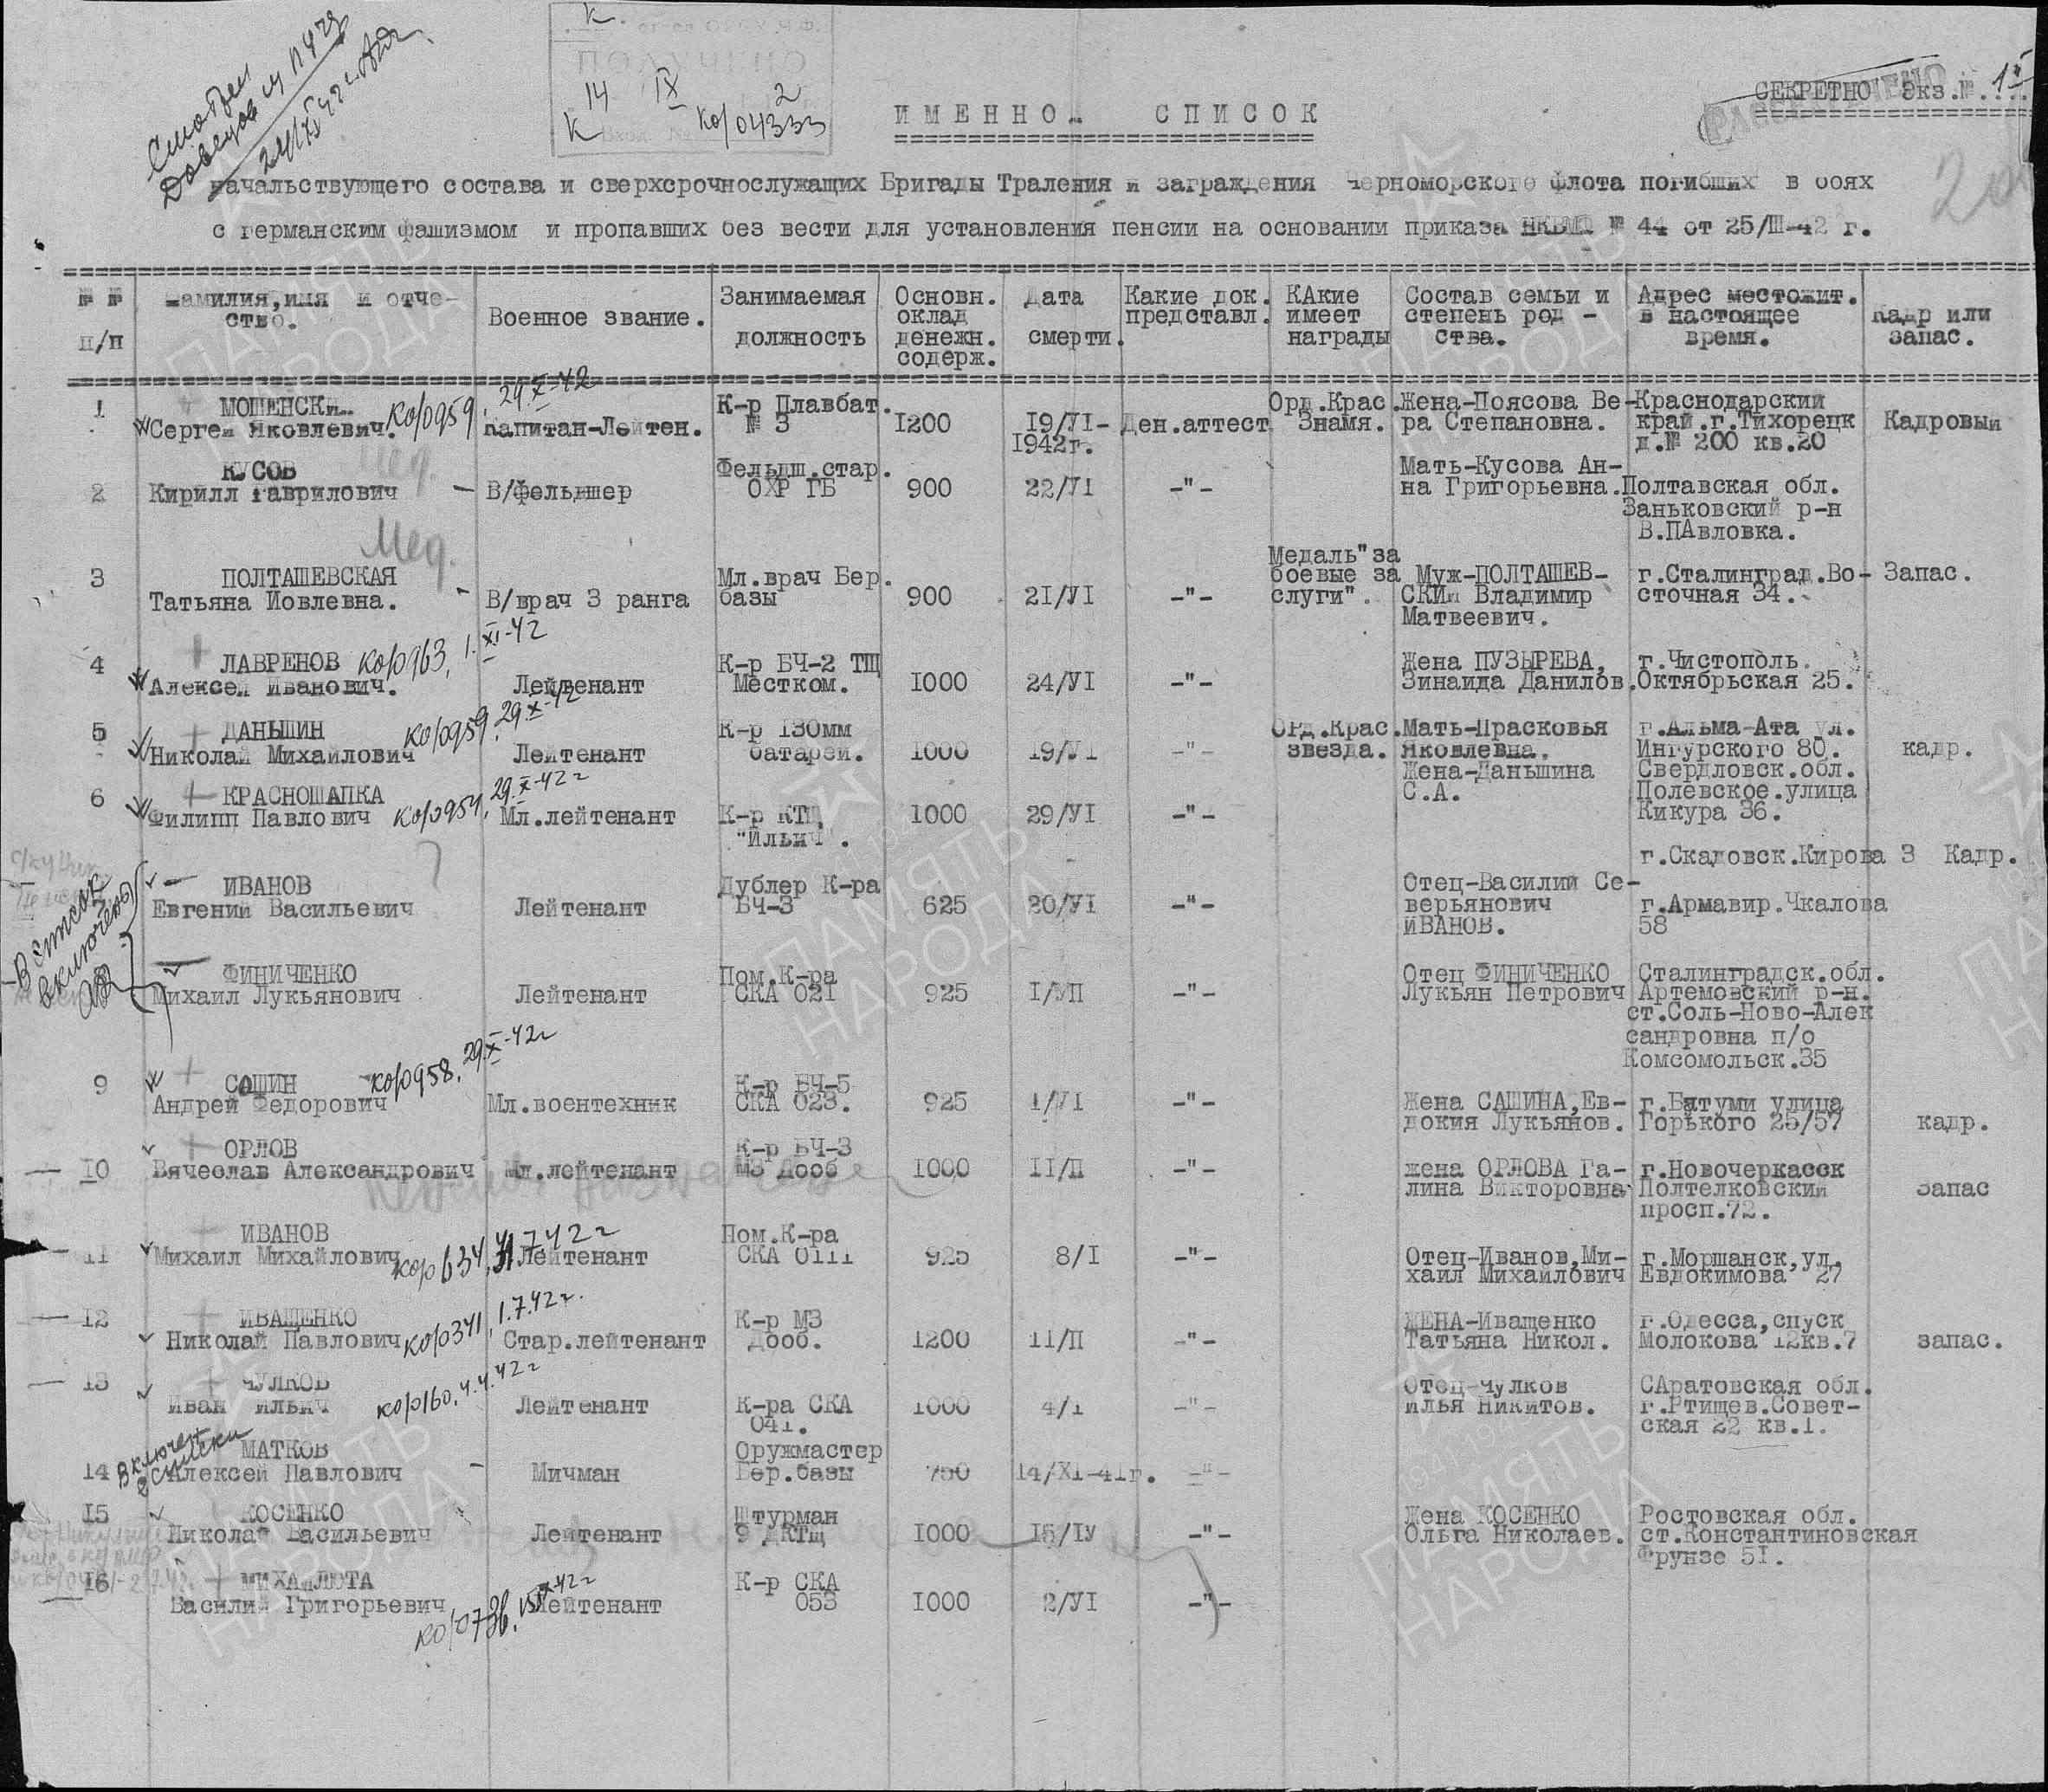 ПОЛУЧЕНО
14 IX 2
К ко/04333
СЕКРЕТНО Экз.№
РАССЕКРЕЧЕНО
ИМЕННОЙ СПИСОК
начальствующего состава и сверхсрочнослужащих Бригады Траления и заграждения Черноморского флота погибших в боях
с германским фашизмом и пропавших без вести для установления пенсии на основании приказа НКВМФ № 44 от 25/III-42 г.
№ № п/п
Фамилия,имя и отче-
ство.
Военное звание.
Занимаемая
должность
Основн.
оклад
денежн.
содерж.
Дата
смерти.
Какие док.
представл.
КАкие
имеет
награды
Состав семьи и
степень род -
ства.
Адрес местожит.
в настоящее
время.
Кадр или
запас.
1
МОШЕНСКИЙ
Сергей Яковлевич.
ко/0959, 29.X-42
Капитан-Лейтен.
К-р Плавбат.
№ 3
1200
19/VI-
1942г.
Ден.аттест
Орд.Крас.
Знамя.
Жена-Поясова Ве-
ра Степановна.
Краснодарский
край.г.Тихорецк
д.№ 200 кв.20
Кадровый
2
КУСОВ
Кирилл Гаврилович
Мед.
В/фельдшер
Фельдш.стар.
ОХР ГБ
900
22/VI
-"-
Мать-Кусова Ан-
на Григорьевна.
Полтавская обл.
Заньковский р-н
В.ПАвловка.
3
ПОЛТАШЕВСКАЯ
Татьяна Иовлевна.
Мед.
В/врач 3 ранга
Мл.врач Бер.
базы
900
21/VI
-"-
Медаль"за
боевые за
слуги".
Муж-ПОЛТАШЕВ-
СКИй Владимир
Матвеевич.
г.Сталинград.Во-
сточная 34.
Запас.
4
ЛАВРЕНОВ
Алексей Иванович.
ко/0963, 1.XI-42
Лейтенант
К-р БЧ-2 ТЩ
Местком.
1000
24/VI
-"-
Жена ПУЗЫРЕВА,
Зинаида Данилов.
г.Чистополь.
Октябрьская 25.
5
ДАНЬШИН
Николай Михайлович
ко/0959, 29.X-42
Лейтенант
К-р 130мм
батареи.
1000
19/VI
-"-
Орд.Крас.
звезда.
Мать-Прасковья
Яковлевна.
Жена-Даньшина
С.А.
г.Альма-Ата ул.
Ингурского 80.
Свердловск.обл.
Полевское.улица
Кикура 36.
кадр.
6
КРАСНОШАПКА
Филипп Павлович
ко/0954, 29.X-42г
Мл.лейтенант
К-р КТЩ
"Ильич".
1000
29/VI
-"-
г.Скадовск.Кирова 3
Кадр.
ИВАНОВ
Евгений Васильевич
Лейтенант
Дублер К-ра
БЧ-3
625
20/VI
-"-
Отец-Василий Се-
верьянович
ИВАНОВ.
г.Армавир.Чкалова
58
В список
включены
ФИНИЧЕНКО
Михаил Лукьянович
Лейтенант
Пом.К-ра
СКА 021
925
1/VII
-"-
Отец ФИНИЧЕНКО
Лукьян Петрович
Сталинградск.обл.
Артемовский р-н.
ст.Соль-Ново-Алек
сандровна п/о
Комсомольск.35
9
САШИН
Андрей Федорович
ко/0958, 29.X-42г
Мл.воентехник
К-р БЧ-5
СКА 023.
925
1/VI
-"-
Жена САШИНА,Ев-
докия Лукьянов.
г.Батуми улица
Горького 25/57
кадр.
10
ОРЛОВ
Вячеслав Александрович
Мл.лейтенант
К-р БЧ-3
МЗ Дооб
1000
11/П
-"-
жена ОРЛОВА Га-
лина Викторовна
г.Новочеркасск
Полтелковский
просп.72.
запас
11
ИВАНОВ
Михаил Михайлович
Лейтенант
Пом.К-ра
СКА 0111
925
8/I
-"-
Отец-Иванов,Ми-
хаил Михайлович
г.Моршанск,ул.
Евдокимова 27
12
ИВАЩЕНКО
Николай Павлович
ко/0341, 1.7.42г.
Стар.лейтенант
К-р МЗ
Дооб.
1200
11/П
-"-
ЖЕНА-Иващенко
Татьяна Никол.
г.Одесса,спуск
Молокова 12кв.7
запас.
13
ЧУЛКОВ
Иван Ильич
ко/0160, 4.4.42г
Лейтенант
К-ра СКА
041.
1000
4/1
-"-
Отец-Чулков
Илья Никитов.
САратовская обл.
г.Ртищев.Совет-
ская 22 кв.1.
14
включен
в списки
МАТКОВ
Алексей Павлович
Мичман
Оружмастер
Бер.базы
750
14/XI-41г.
-"-
15
КОСЕНКО
Николай Васильевич
Лейтенант
Штурман
9 ДКТщ
1000
15/IУ
-"-
Жена КОСЕНКО
Ольга Николаев.
Ростовская обл.
ст.Константиновская
Фрунзе 51.
16
МИХАЙЛЮТА
Василий Григорьевич
Лейтенант
К-р СКА
053
1000
2/УI
-"-
ПАМЯТЬ
НАРОДА